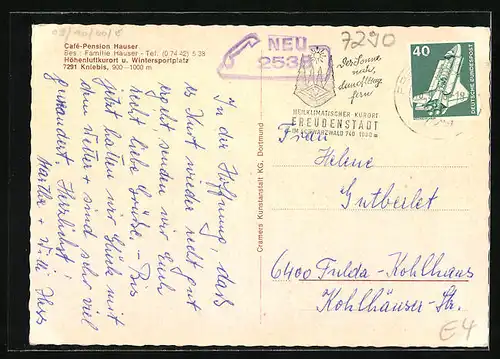 09/10/00/8
Café-Pension Hauser
Bes.: Familie Hauser - Tel. (0 74 42) 5 38
Höhenluftkurort u. Wintersportplatz
7291 Kniebis, 900—1000 m
In der Hoffnung, daß
es Kurt wieder recht gut
geht senden wir Euch
recht liebe Grüße. - Bis
jetzt hatten wir Glück mit
dem Wetter + sind sehr viel
gewandert. Herzlichst
Martha + Willi Hess
Cramers Kunstanstalt KG, Dortmund
NEU
2538
7290
Der Sonne
nah,
dem Alltag
fern
HEILKLIMATISCHER KURORT
FREUDENSTADT
IM SCHWARZWALD 740-1000 m
40
DEUTSCHE BUNDESPOST
Frau
Helene
Gutberlet
6400 Fulda-Kohlhaus
Kohlhäuser-Str.
E4